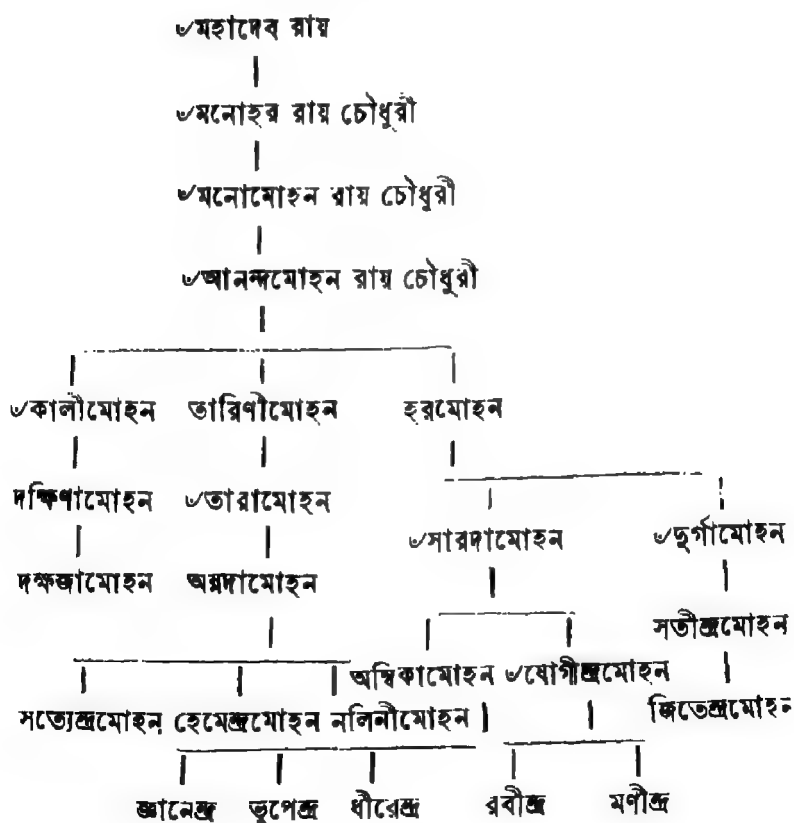 ৺মহাদেব রায়
৺মনোহর রায় চৌধুরী
৺মনোমোহন রায় চৌধুরী
৺আনন্দমোহন রায় চৌধুরী
৺কালীমোহন তারিণীমোহন হরমোহন
দক্ষিণামোহন ৺তারামোহন
৺সারদামোহন ৺দুর্গামোহন
দক্ষজামোহন অন্নদামোহন
সতীন্দ্রমোহন
অম্বিকামোহন ৺যোগীন্দ্রমোহন
সত্যেন্দ্রমোহন হেমেন্দ্রমোহন নলিনীমোহন জিতেন্দ্রমোহন
জ্ঞানেন্দ্র ভূপেন্দ্র ধীরেন্দ্র রবীন্দ্র মণীন্দ্র